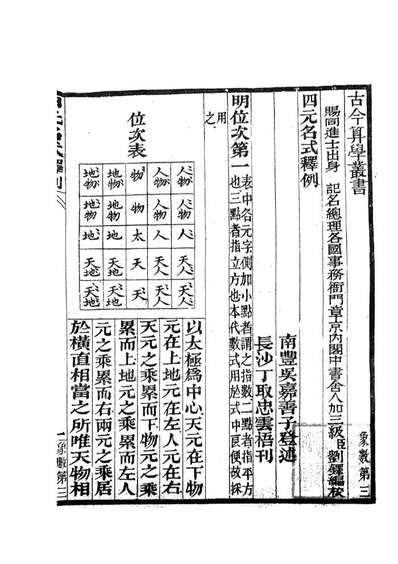 古今算學叢書
賜同進士出身 記名總理各國事務衙門章京內閣中書舍人加三級臣劉鐸編校
象數第三
四元名式釋例
南豐吳嘉善子登述
長沙丁取忠雲梧刊
明位次第一
表中名元字側加小點者謂之指數二點者指平方
也三點者指立方也本代數式用於式中頗便故採
用之
位次表
人物 人物 人 天人 天人
人物 人物 人 天人 天人
物 物 太 天 天
地物 地物 地 天地 天地
地物 地物 地 天地 天地
以太極爲中心天元在下物
元在上地元在左人元在右
天元之乘累而下物元之乘
累而上地元之乘累而左人
元之乘累而右兩元之乘居
於橫直相當之所唯天物相
象數第三